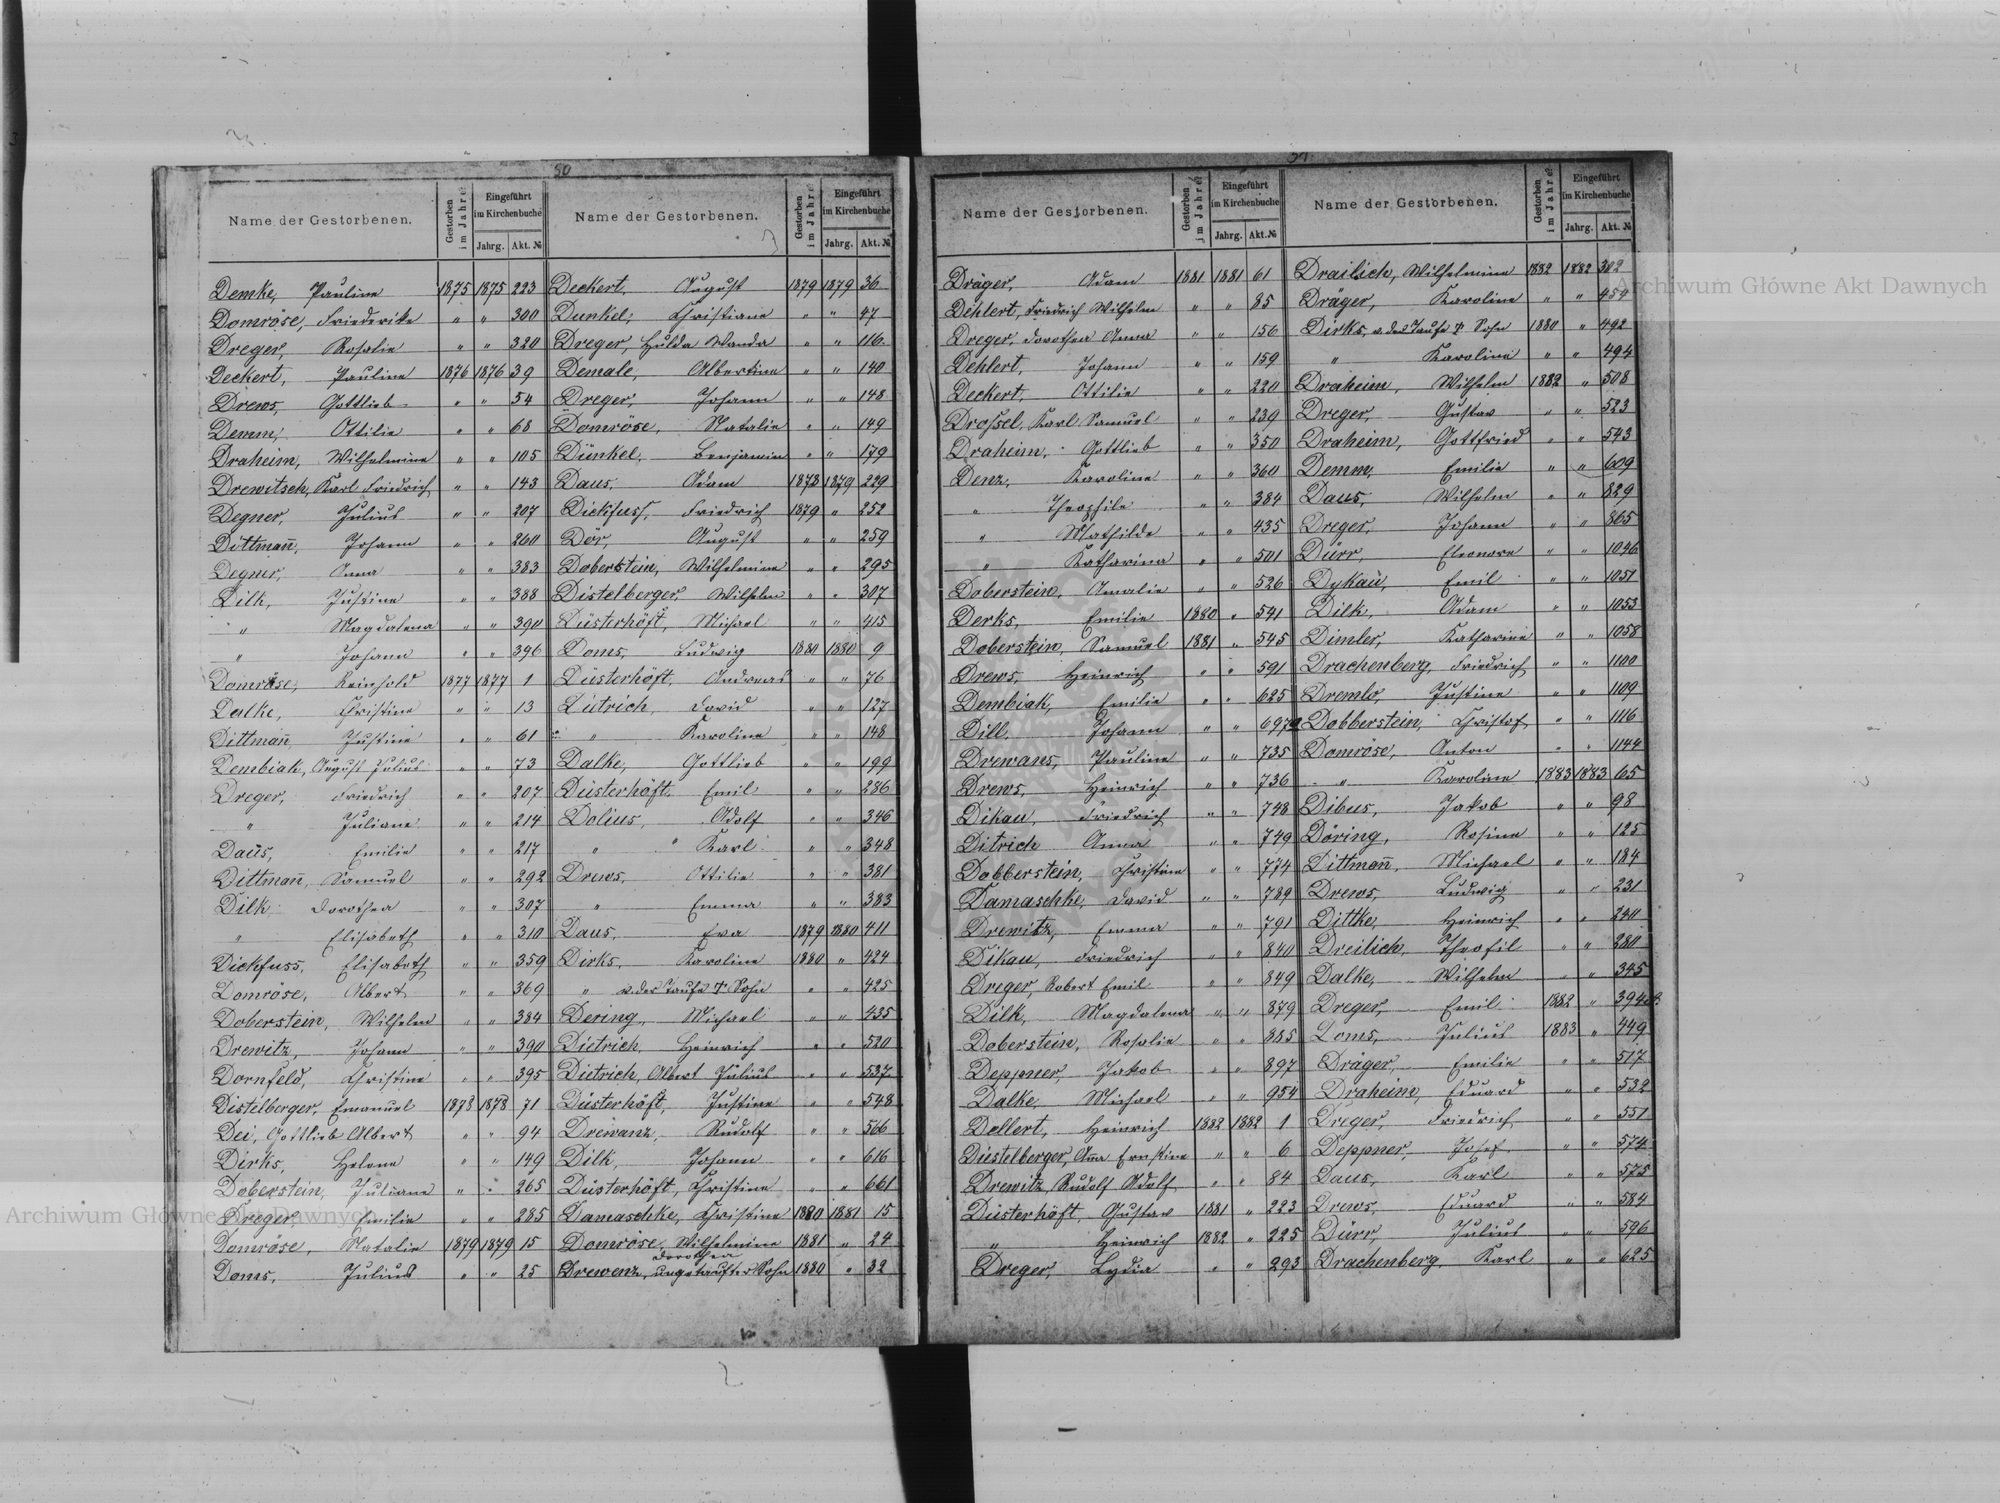 50
Name der Gestorbenen. Gestorben im Jahre Eingeführt im Kirchenbuche Jahrg. Akt. №
Demke, Pauline 1875 1875 223
Domröse, Friederike " " 300
Dreger, Rosalie " " 320
Deckert, Pauline 1876 1876 39
Drews, Gottlieb " " 54
Demm, Ottilie " " 68
Draheim, Wilhelmine " " 105
Drewitsch, Karl Friedrich " " 143
Degner, Julius " " 207
Dittmañ, Johann " " 260
Degner, Anna " " 383
Dilk, Justine " " 388
" Magdalena " " 390
" Johann " " 396
Domröse, Reinhold 1877 1877 1
Dalke, Christine " " 13
Dittmañ, Justine " " 61
Dembiak, August Julius " " 73
Dreger, Friedrich " " 207
" Juliane " " 214
Daus, Emilie " " 217
Dittmañ, Samuel " " 292
Dilk, Dorothea " " 307
" Elisabeth " " 310
Dickfuss, Elisabeth " " 359
Domröse, Albert " " 369
Doberstein, Wilhelm " " 384
Drewitz, Johann " " 390
Dornfeld, Christine " " 395
Distelberger, Emanuel 1878 1878 71
Dei, Gottlieb Albert " " 94
Dirks, Helene " " 149
Doberstein, Juliane " " 265
Dreger, Emilie " " 285
Domröse, Natalie 1879 1879 15
Doms, Julius " " 25
Name der Gestorbenen. Gestorben im Jahre Eingeführt im Kirchenbuche Jahrg. Akt. №
Deckert, August 1879 1879 36
Dunkel, Christiane " " 47
Dreger, Hulda Wanda " " 116
Demale, Albertine " " 140
Dreger, Johann " " 148
Domröse, Natalie " " 149
Dünkel, Benjamin " " 179
Daus, Adam 1878 1879 229
Dickfuss, Friedrich 1879 " 252
Dör, August " " 259
Doberstein, Wilhelmine " " 295
Distelberger, Wilhelm " " 307
Düsterhöft, Michael " " 415
Doms, Ludwig 1880 1880 9
Düsterhöft, Andreas " " 76
Dütrich, David " " 127
" Karoline " " 148
Dalke, Gottlieb " " 199
Düsterhöft, Emil " " 286
Dolius, Adolf " " 346
" " Karl " " 348
Drews, Ottilie " " 381
" Emma " " 383
Daus, Eva 1879 1880 411
Dirks, Karoline 1880 " 424
" v. der Taufe † Sohn " " 425
Dering, Michael " " 435
Dietrich, Heinrich " " 520
Dietrich, Albert Julius " " 537
Düsterhöft, Justine " " 548
Drewanz, Rudolf " " 566
Dilk, Johann " " 616
Düsterhöft, Christine " " 661
Damaschke, Christine 1880 1881 15
Domröse, Wilhelmine Dorothea 1881 " 24
Drewenz, ungetaufter Sohn 1880 " 32
51
Name der Gestorbenen. Gestorben im Jahre Eingeführt im Kirchenbuche Jahrg. Akt. №
Dräger, Adam 1881 1881 61
Dehlert, Friedrich Wilhelm " " 85
Dreger, Dorothea Anna " " 156
Dehlert, Johann " " 159
Deckert, Ottilie " " 220
Drossel, Karl Samuel " " 239
Draheim, Gottlieb " " 350
Denz, Karoline " " 360
" Theophile " " 384
" Mathilde " " 435
" Katharina " " 501
Doberstein, Amalie " " 526
Derks, Emilie 1880 " 541
Doberstein, Samuel 1881 " 545
Drews, Heinrich " " 591
Dembiak, Emilie " " 625
Dill, Johann " " 697a
Drewans, Pauline " " 735
Drews, Heinrich " " 736
Dikau, Friedrich " " 748
Ditrich Anna " " 749
Dobberstein, Christine " " 774
Damaschke, David " " 789
Drewitz, Emma " " 791
Dikau, Friedrich " " 840
Dreger, Robert Emil " " 849
Dilk, Magdalena " " 879
Doberstein, Rosalie " " 885
Deppner, Jakob " " 897
Dalke, Michael " " 954
Dellert, Heinrich 1882 1882 1
Distelberger, Anna Ernstine " " 6
Drewitz, Rudolf Adolf " " 84
Düsterhöft, Gustav 1881 " 223
" Heinrich 1882 " 225
Dreger, Lydia " " 293
Name der Gestorbenen. Gestorben im Jahre Eingeführt im Kirchenbuche Jahrg. Akt. №
Drailich, Wilhelmine 1882 1882 302
Dräger, Karoline " " 454
Dirks, v. der Taufe † Sohn 1880 " 492
" Karoline " " 494
Draheim, Wilhelm 1882 " 508
Dreger, Gustav " " 523
Draheim, Gottfried " " 543
Demm, Emilie " " 609
Daus, Wilhelm " " 829
Dreger, Johann " " 865
Dürr, Eleonore " " 1046
Dykau, Emil " " 1051
Dilk, Adam " " 1055
Dimler, Katharine " " 1058
Drachenberg, Friedrich " " 1100
Dremlo, Justine " " 1109
Dobberstein, Christof " " 1116
Domröse, Anton " " 1144
" Karoline 1883 1883 65
Dibus, Jakob " " 98
Döring, Rosine " " 125
Dittmañ, Michael " " 184
Drews, Ludwig " " 231
Dittke, Heinrich " " 240
Dreilich, Theofil " " 280
Dalke, Wilhelm " " 345
Dreger, Emil 1882 " 394
Doms, Julius 1883 " 449
Dräger, Emilie " " 517
Draheim, Eduard " " 532
Dreger, Friedrich " " 551
Deppner, Josef " " 574
Daus, Karl " " 575
Drews, Eduard " " 584
Dürr, Julius " " 596
Drachenberg, Karl " " 625
Archiwum Główne Akt Dawnych
Archiwum Główne Akt Dawnych